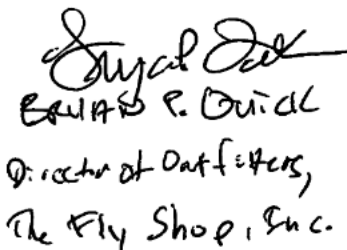 BRYAN P. QUICK
Director of Outfitters,
The Fly Shop, Inc.